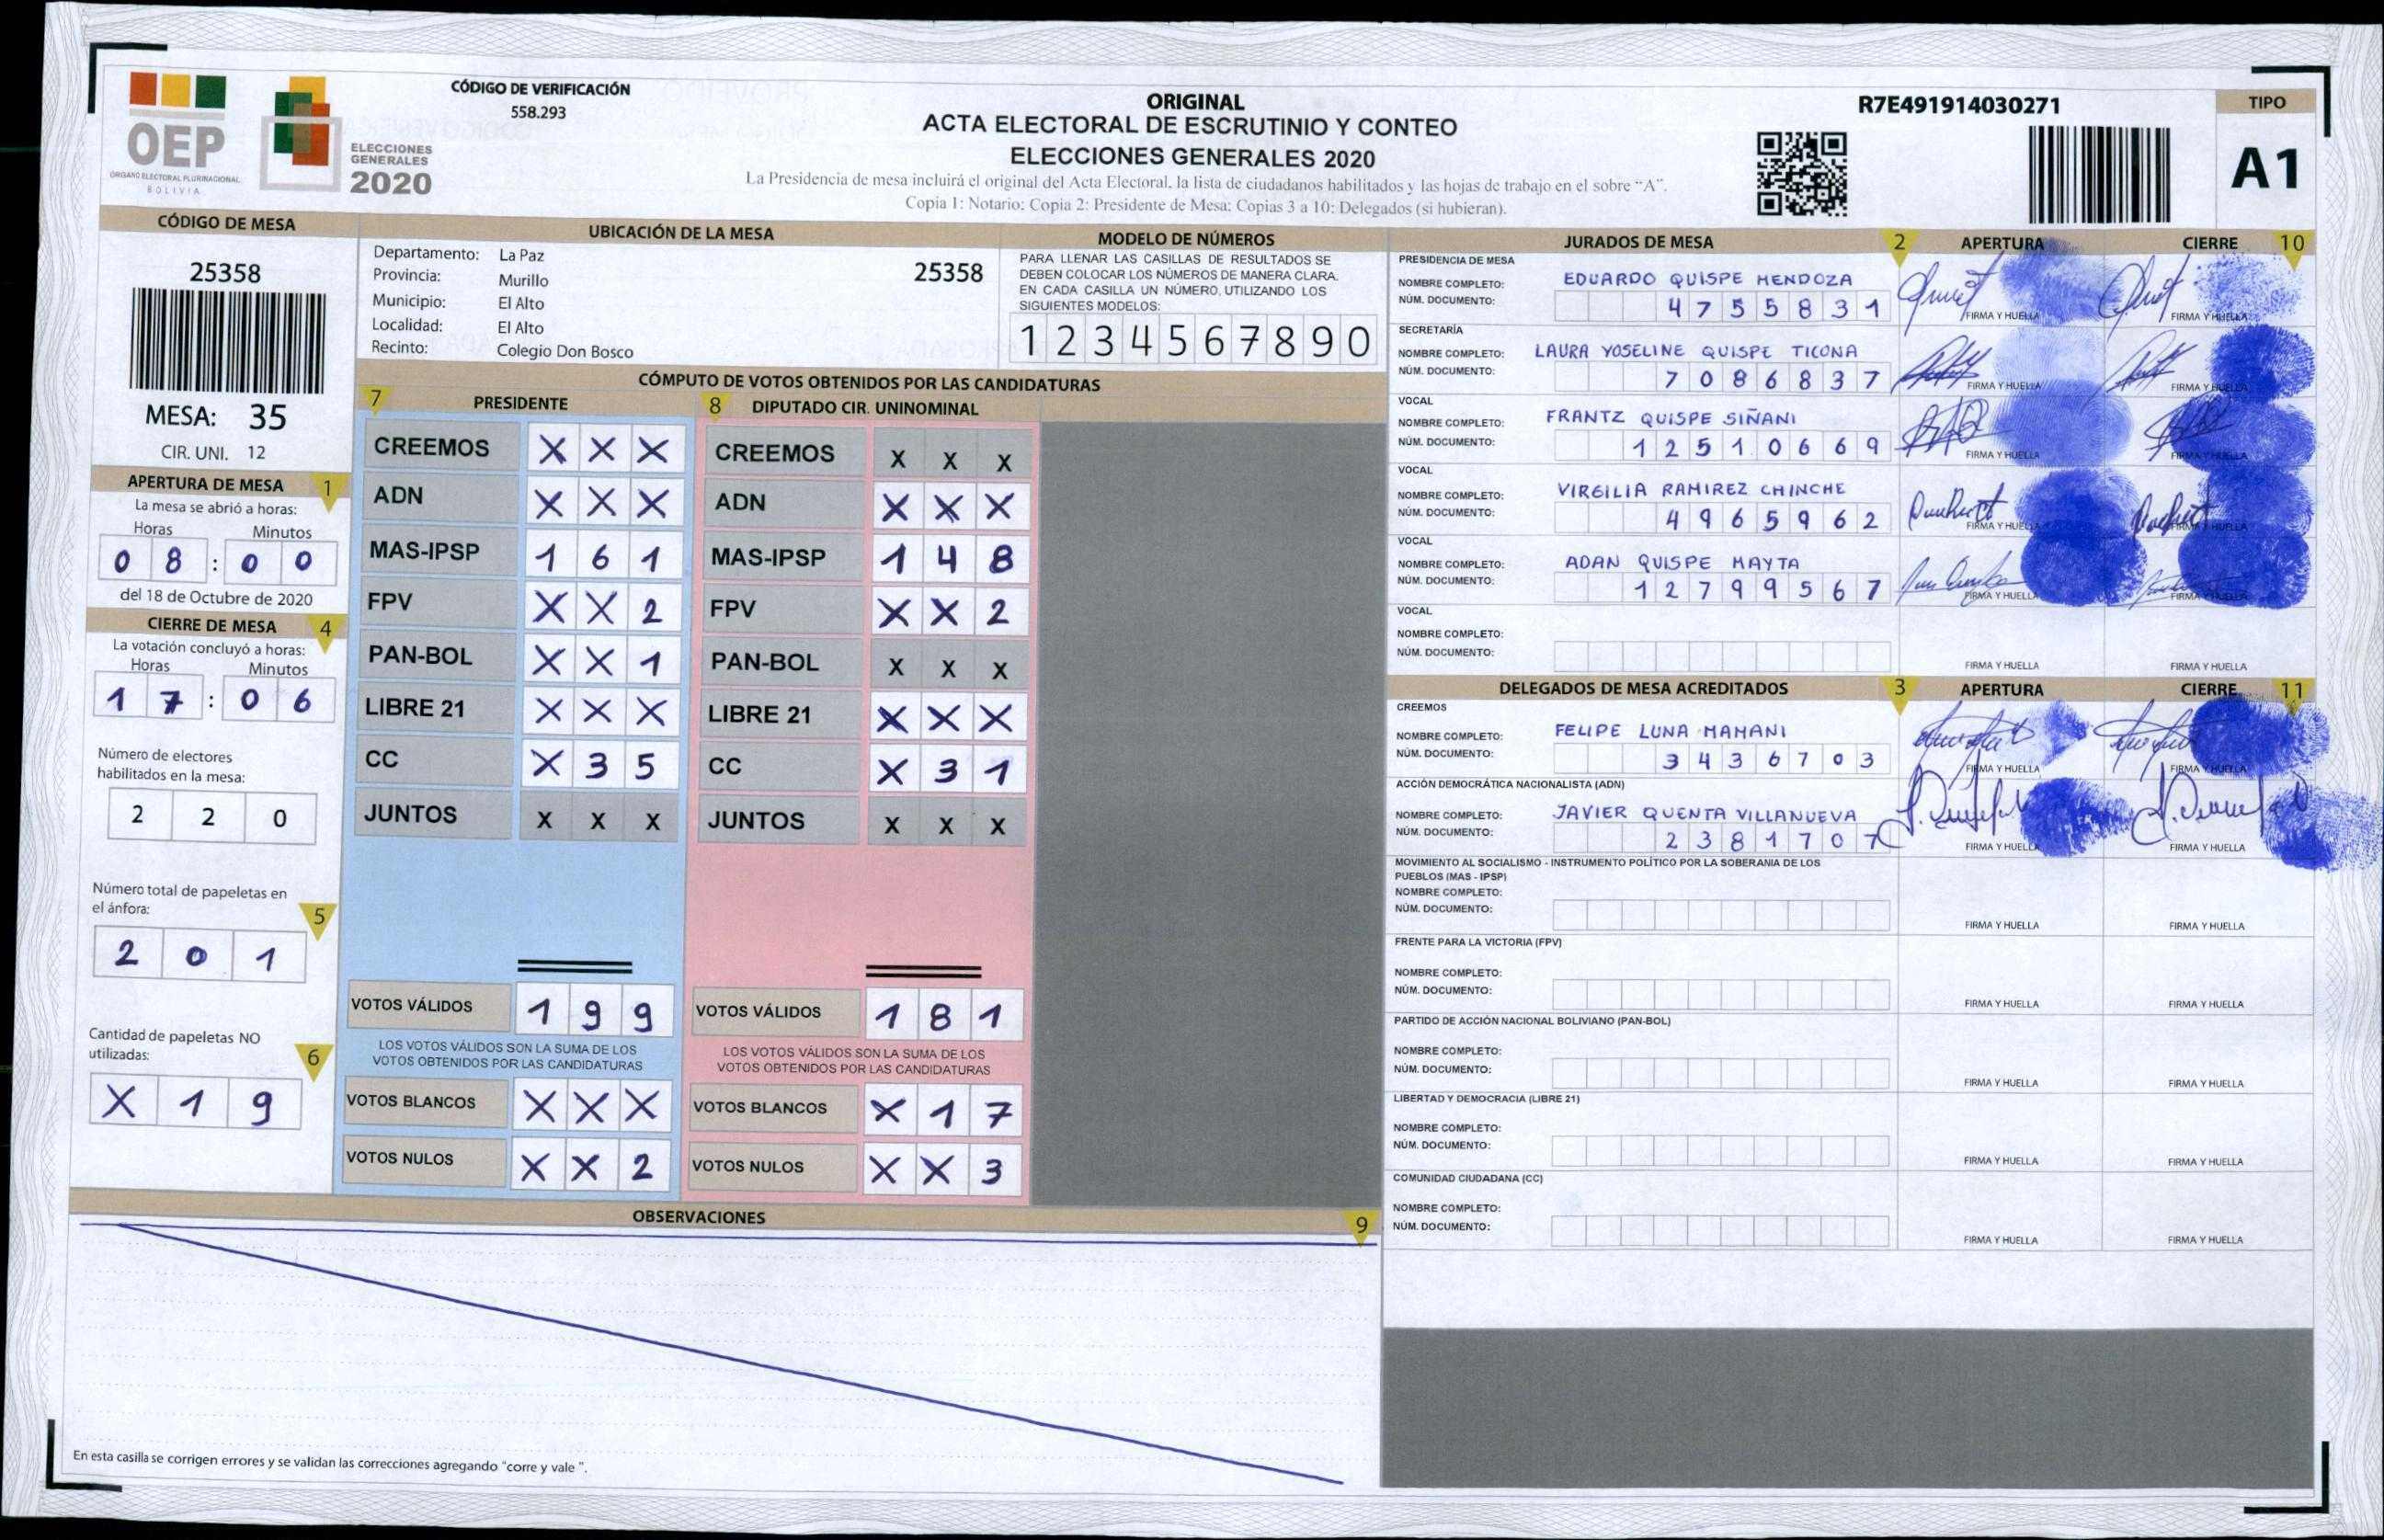 CÓDIGO DE VERIFICACIÓN
558.293
OEP
ÓRGANO ELECTORAL PLURINACIONAL
BOLIVIA
ELECCIONES
GENERALES
2020
ORIGINAL
ACTA ELECTORAL DE ESCRUTINIO Y CONTEO
ELECCIONES GENERALES 2020
La Presidencia de mesa incluirá el original del Acta Electoral, la lista de ciudadanos habilitados y las hojas de trabajo en el sobre "A".
Copia 1: Notario; Copia 2: Presidente de Mesa; Copias 3 a 10: Delegados (si hubieran).
R7E491914030271
TIPO
A1
CÓDIGO DE MESA
25358
MESA: 35
CIR. UNI. 12
APERTURA DE MESA 1
La mesa se abrió a horas:
Horas Minutos
0 8 : 0 0
del 18 de Octubre de 2020
CIERRE DE MESA 4
La votación concluyó a horas:
Horas Minutos
1 7 : 0 6
Número de electores
habilitados en la mesa:
2 2 0
Número total de papeletas en
el ánfora: 5
2 0 1
Cantidad de papeletas NO
utilizadas: 6
X 1 9
UBICACIÓN DE LA MESA
Departamento: La Paz
25358
Provincia: Murillo
Municipio: El Alto
Localidad: El Alto
Recinto: Colegio Don Bosco
MODELO DE NÚMEROS
PARA LLENAR LAS CASILLAS DE RESULTADOS SE
DEBEN COLOCAR LOS NÚMEROS DE MANERA CLARA.
EN CADA CASILLA UN NÚMERO, UTILIZANDO LOS
SIGUIENTES MODELOS:
1 2 3 4 5 6 7 8 9 0
CÓMPUTO DE VOTOS OBTENIDOS POR LAS CANDIDATURAS
7 PRESIDENTE
CREEMOS X X X
ADN X X X
MAS-IPSP 1 6 1
FPV X X 2
PAN-BOL X X 1
LIBRE 21 X X X
CC X 3 5
JUNTOS X X X
VOTOS VÁLIDOS 1 9 9
LOS VOTOS VÁLIDOS SON LA SUMA DE LOS
VOTOS OBTENIDOS POR LAS CANDIDATURAS
VOTOS BLANCOS X X X
VOTOS NULOS X X 2
8 DIPUTADO CIR. UNINOMINAL
CREEMOS X X X
ADN X X X
MAS-IPSP 1 4 8
FPV X X 2
PAN-BOL X X X
LIBRE 21 X X X
CC X 3 1
JUNTOS X X X
VOTOS VÁLIDOS 1 8 1
LOS VOTOS VÁLIDOS SON LA SUMA DE LOS
VOTOS OBTENIDOS POR LAS CANDIDATURAS
VOTOS BLANCOS X 1 7
VOTOS NULOS X X 3
OBSERVACIONES 9
En esta casilla se corrigen errores y se validan las correcciones agregando "corre y vale ".
JURADOS DE MESA 2 APERTURA CIERRE 10
PRESIDENCIA DE MESA
NOMBRE COMPLETO: EDUARDO QUISPE MENDOZA
NÚM. DOCUMENTO: 4 7 5 5 8 3 1
FIRMA Y HUELLA FIRMA Y HUELLA
SECRETARÍA
NOMBRE COMPLETO: LAURA YOSELINE QUISPE TICONA
NÚM. DOCUMENTO: 7 0 8 6 8 3 7
FIRMA Y HUELLA FIRMA Y HUELLA
VOCAL
NOMBRE COMPLETO: FRANTZ QUISPE SIÑANI
NÚM. DOCUMENTO: 1 2 5 1 0 6 6 9
FIRMA Y HUELLA FIRMA Y HUELLA
VOCAL
NOMBRE COMPLETO: VIRGILIA RAMIREZ CHINCHE
NÚM. DOCUMENTO: 4 9 6 5 9 6 2
FIRMA Y HUELLA FIRMA Y HUELLA
VOCAL
NOMBRE COMPLETO: ADAN QUISPE MAYTA
NÚM. DOCUMENTO: 1 2 7 9 9 5 6 7
FIRMA Y HUELLA FIRMA Y HUELLA
VOCAL
NOMBRE COMPLETO:
NÚM. DOCUMENTO:
FIRMA Y HUELLA FIRMA Y HUELLA
DELEGADOS DE MESA ACREDITADOS 3 APERTURA CIERRE 11
CREEMOS
NOMBRE COMPLETO: FELIPE LUNA MAMANI
NÚM. DOCUMENTO: 3 4 3 6 7 0 3
FIRMA Y HUELLA FIRMA Y HUELLA
ACCIÓN DEMOCRÁTICA NACIONALISTA (ADN)
NOMBRE COMPLETO: JAVIER QUENTA VILLANUEVA
NÚM. DOCUMENTO: 2 3 8 1 7 0 7
FIRMA Y HUELLA FIRMA Y HUELLA
MOVIMIENTO AL SOCIALISMO - INSTRUMENTO POLÍTICO POR LA SOBERANIA DE LOS
PUEBLOS (MAS - IPSP)
NOMBRE COMPLETO:
NÚM. DOCUMENTO:
FIRMA Y HUELLA FIRMA Y HUELLA
FRENTE PARA LA VICTORIA (FPV)
NOMBRE COMPLETO:
NÚM. DOCUMENTO:
FIRMA Y HUELLA FIRMA Y HUELLA
PARTIDO DE ACCIÓN NACIONAL BOLIVIANO (PAN-BOL)
NOMBRE COMPLETO:
NÚM. DOCUMENTO:
FIRMA Y HUELLA FIRMA Y HUELLA
LIBERTAD Y DEMOCRACIA (LIBRE 21)
NOMBRE COMPLETO:
NÚM. DOCUMENTO:
FIRMA Y HUELLA FIRMA Y HUELLA
COMUNIDAD CIUDADANA (CC)
NOMBRE COMPLETO:
NÚM. DOCUMENTO:
FIRMA Y HUELLA FIRMA Y HUELLA